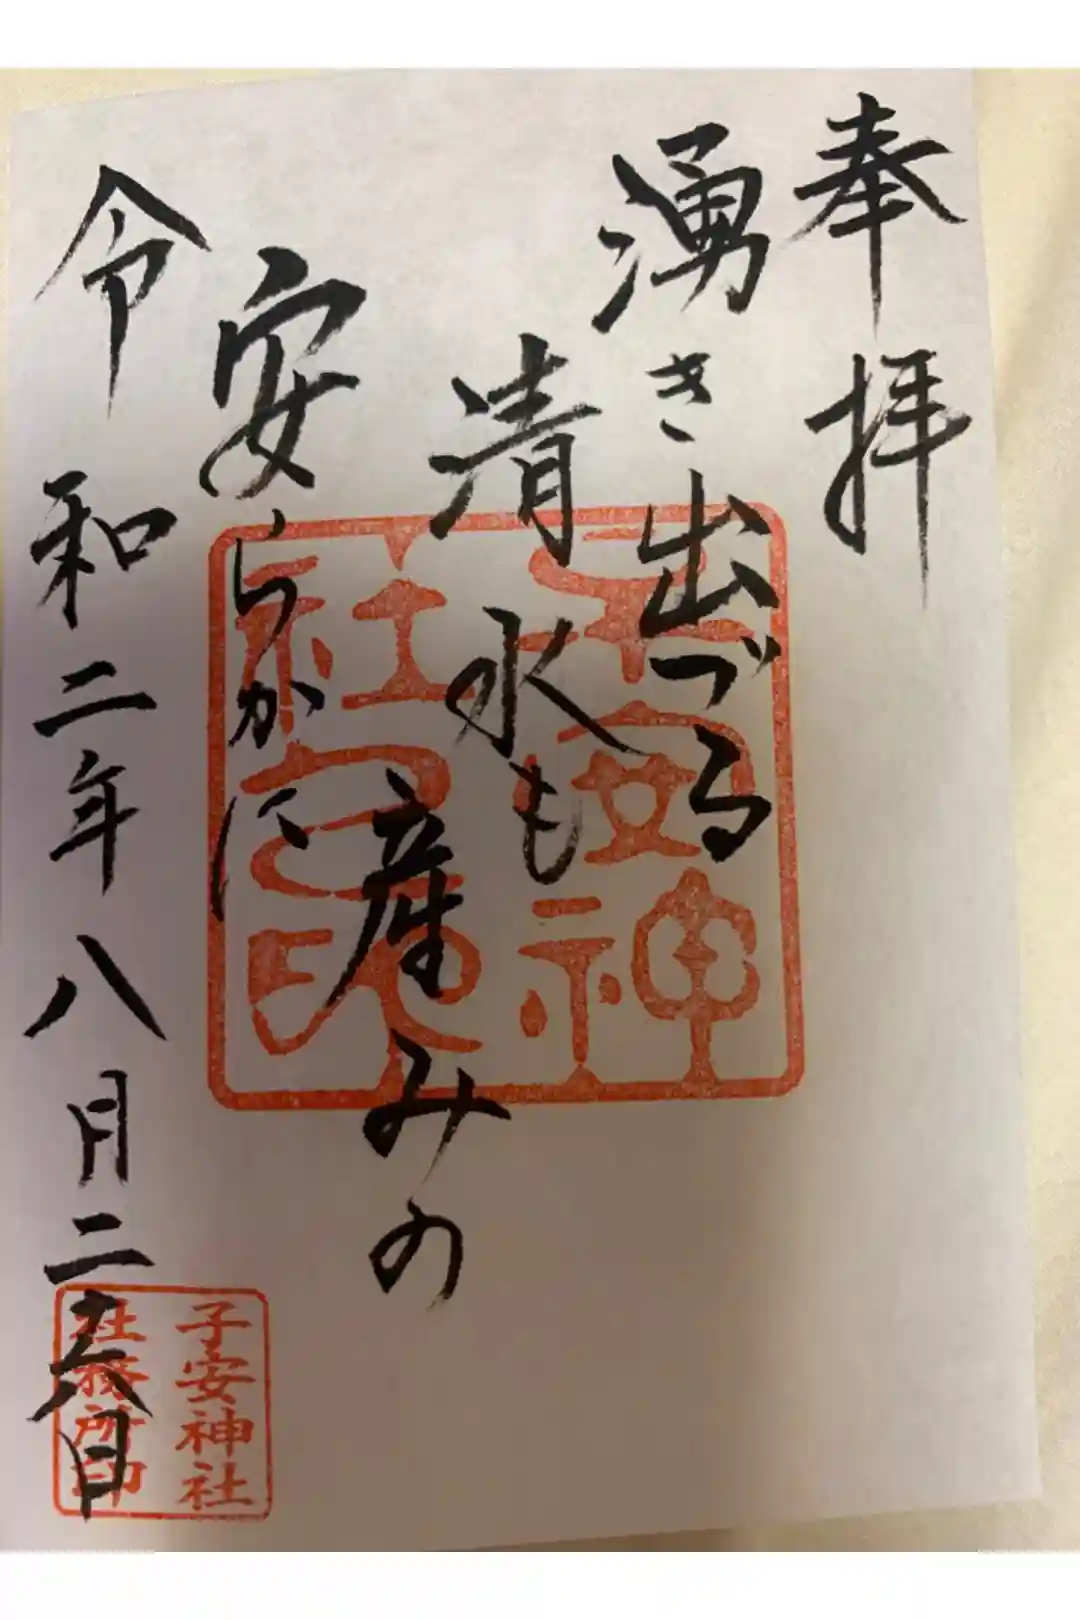 奉拝
湧き出づる
清水も
産みの
安らかに
令和二年八月二十六日
子安神
社之印
子安神社
社務所印